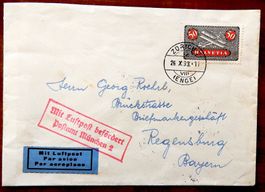 50 50
HELVETIA
ZÜRICH
26.X.32.-17
VIII
(ENGE)
Herrn Georg Roehrl,
Brückstrasse
Briefmarkengeschäft
Regensburg
Bayern
Mit Luftpost befördert
Postamt München 2
Mit Luftpost
Par avion
Par aeroplano